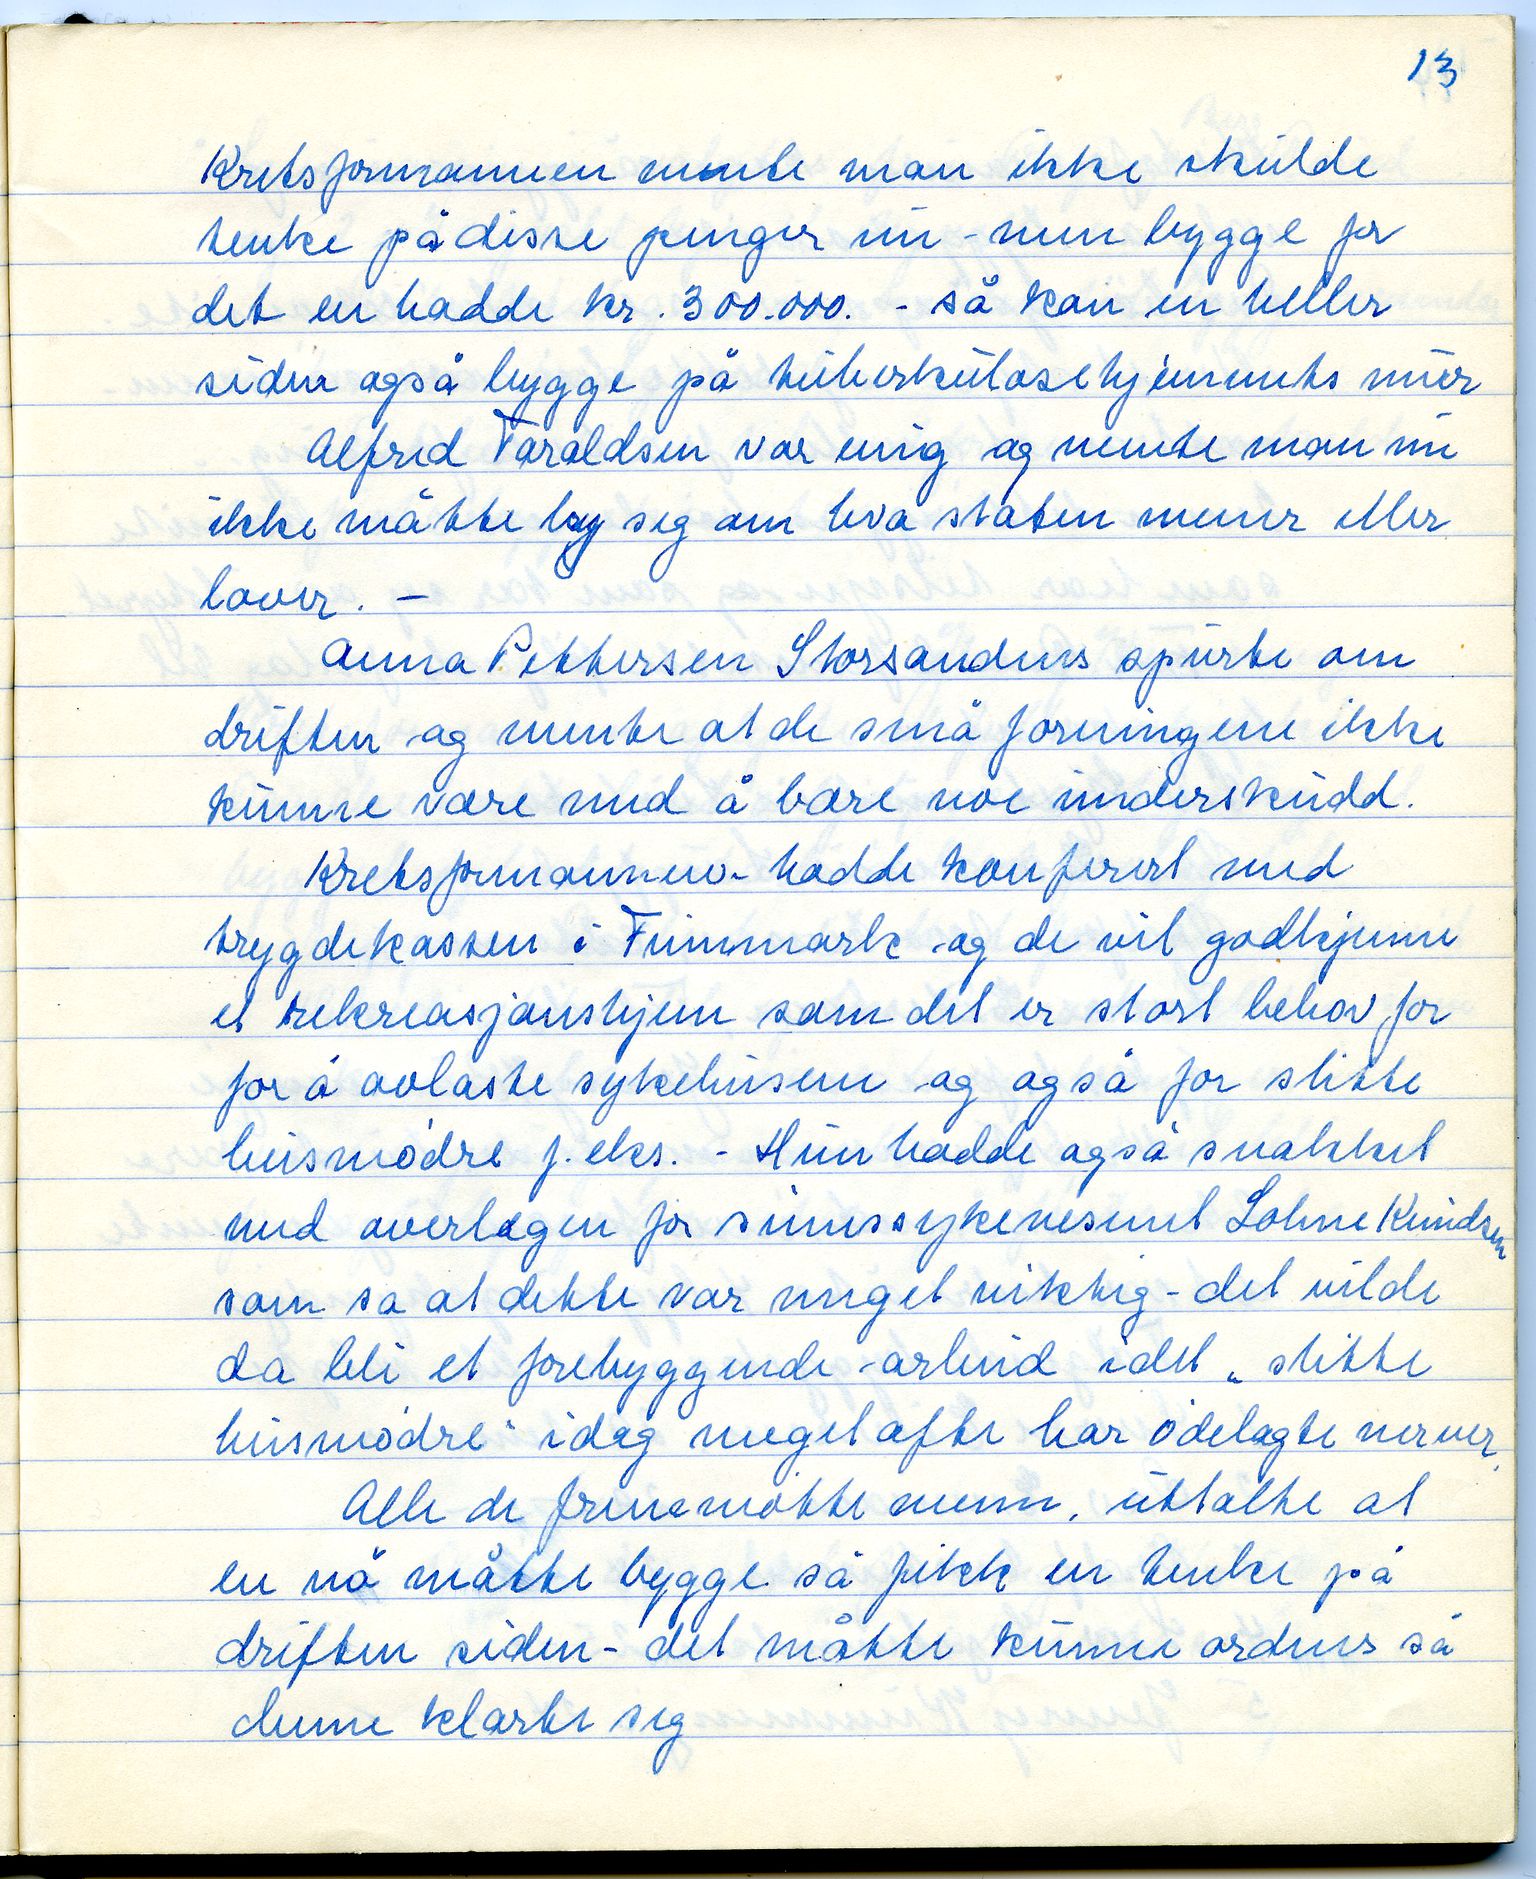 13
Kretsformannen mente man ikke skulde
tenke på disse penger nu - men bygge for
det en hadde kr. 300.000. - så kan en heller
siden også bygge på tuberkulosehjemmets mur
Alfred Faraldsen var enig og mente man nu
ikke måtte by seg om hva staten mener eller
lover. -
Anna Pettersen Storsandnes spurte om
driften og mente at de små foreningene ikke
kunne være med å bære noe underskudd.
Kretsformannen - hadde konferert med
trygdekassen i Finnmark og de vil godkjenne
et rekreasjonshjem som det er stort behov for
for å avlaste sykehusene og også for slitte
husmødre f. eks. - Hun hadde også snakket
med overlegen for sinnssykevesenet Lohne Knudsen
som sa at dette var meget viktig - det vilde
da bli et forebyggende arbeid idet „ slitte
husmødre" idag meget ofte har ødelagte nerver.
Alle de fremmøtte menn, uttalte at
en nå måtte bygge så fikk en tenke på
driften siden - det måtte kunne ordnes så
denne klarte seg